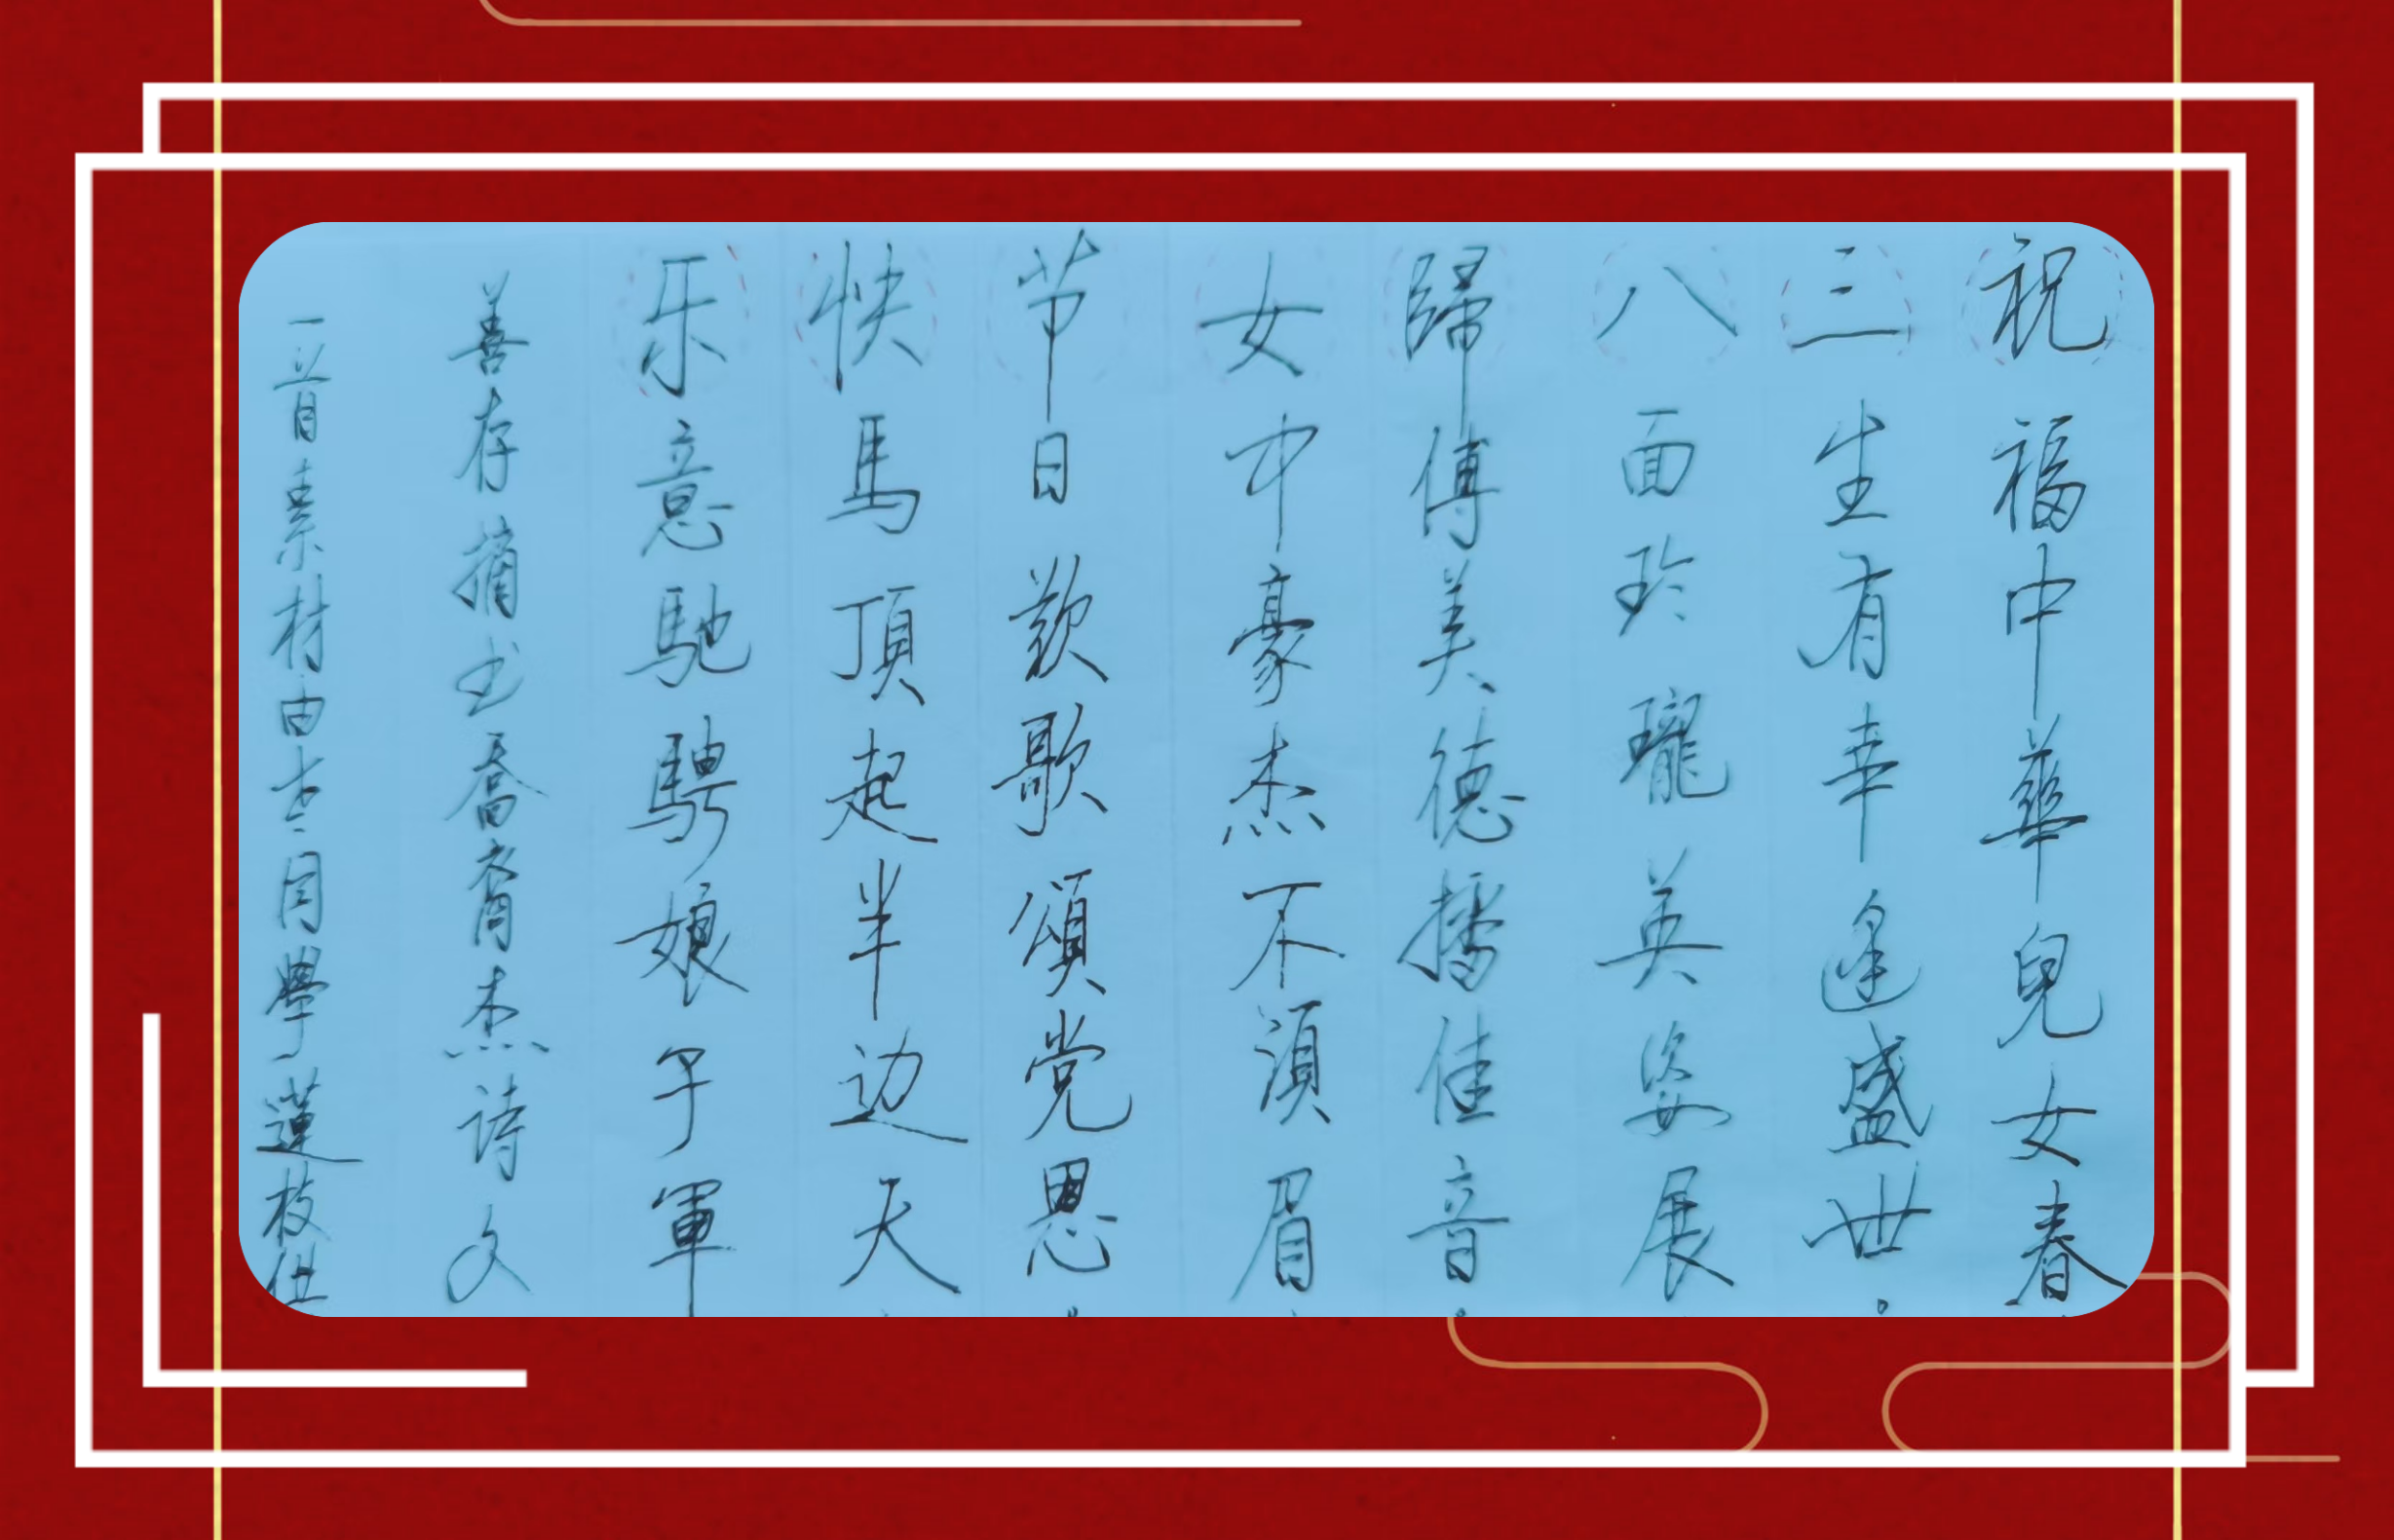 祝福中華兒女春
三生有幸逢盛世。
八面玲瓏英姿展
歸傳美德播佳音。
女中豪杰不湏眉
节日歡歌頌党恩。
快馬頂起半边天
乐意馳騁娘子軍
善存摘书喬裔杰诗文
一首素材由老同學蓮枝